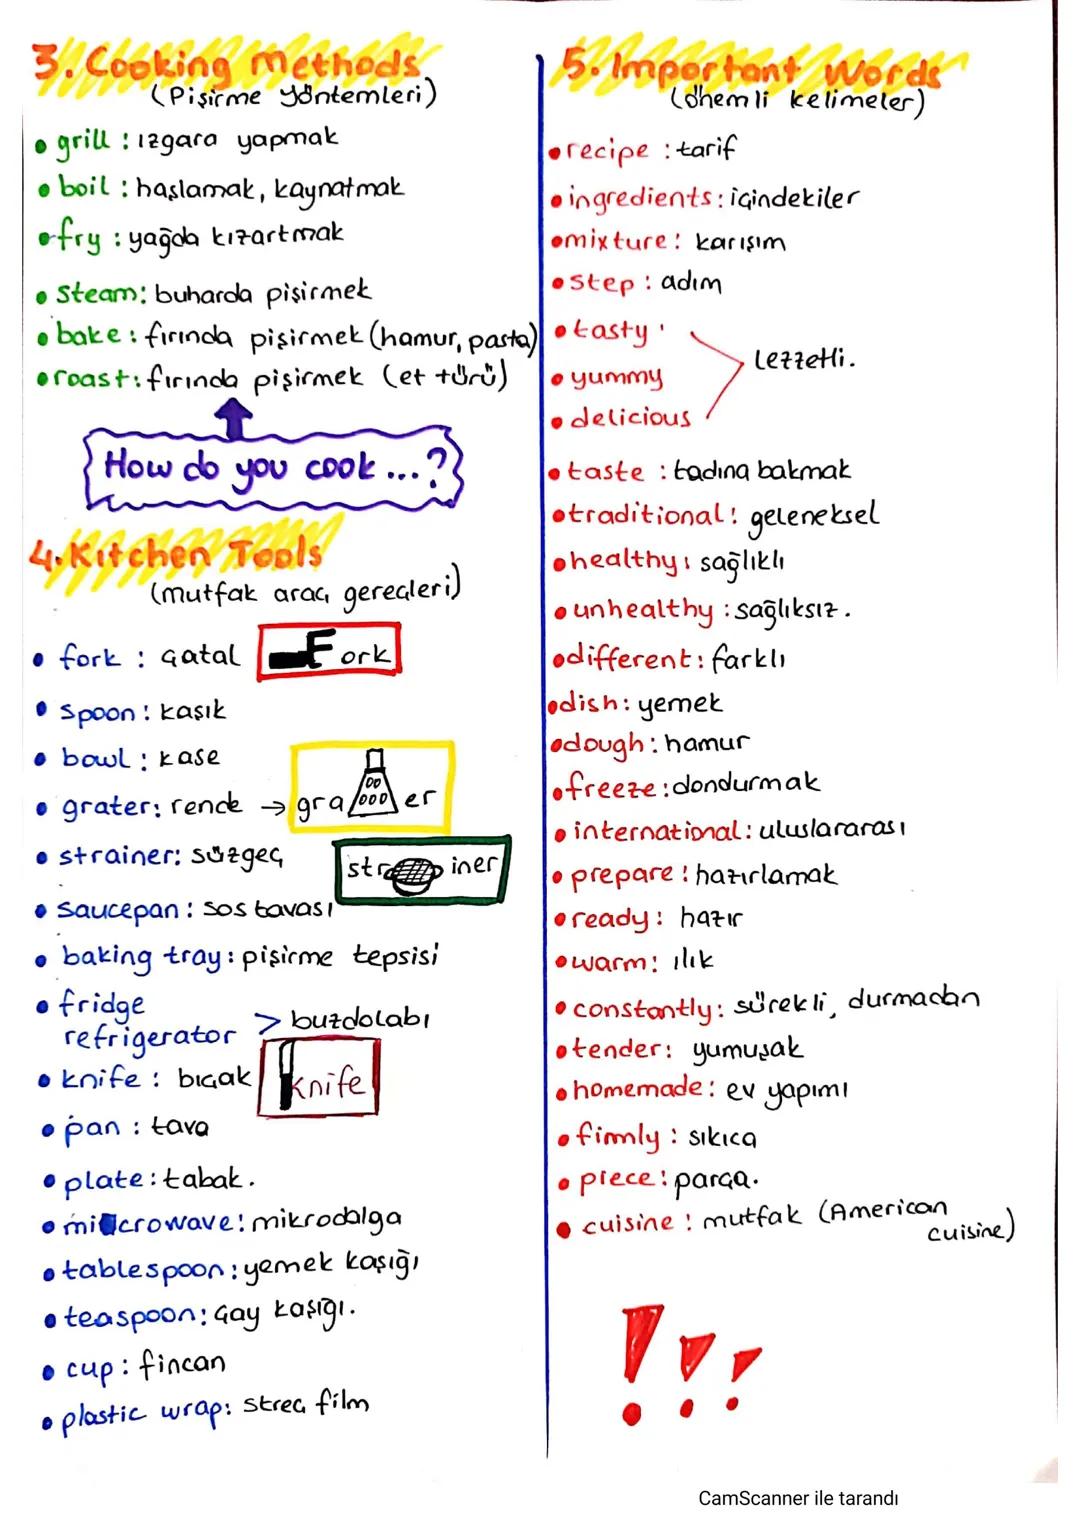 3. Cooking Methods
(Pişirme yöntemleri)
• grill : ızgara yapmak
• boil : haşlamak, kaynatmak
• fry : yağda kızartmak
• steam: buharda pişirmek
• bake : fırında pişirmek (hamur, pasta)
• roast : fırında pişirmek (et türü)
How do you cook ...?
4. Kitchen Tools
(mutfak araç gereçleri)
• fork : çatal
Fork
• spoon : kaşık
• bowl : kase
• grater: rende → gra er
• strainer: süzgeç
str iner
• saucepan : sos tavası
• baking tray : pişirme tepsisi
• fridge
refrigerator > buzdolabı
• knife : bıçak
knife
• pan : tava
• plate : tabak.
• microwave : mikrodalga
• tablespoon : yemek kaşığı
• teaspoon : çay kaşığı.
• cup : fincan
• plastic wrap: streç film
5. Important Words
(önemli kelimeler)
• recipe : tarif
• ingredients : içindekiler
• mixture : karışım
• step : adım
• tasty
• yummy
lezzetli.
• delicious
• taste : tadına bakmak
• traditional : geleneksel
• healthy : sağlıklı
• unhealthy : sağlıksız.
• different : farklı
• dish : yemek
• dough : hamur
• freeze : dondurmak
• international : uluslararası
• prepare : hazırlamak
• ready : hazır
• warm : ılık
• constantly : sürekli, durmadan
• tender : yumuşak
• homemade : ev yapımı
• firmly : sıkıca
• piece : parça.
• cuisine : mutfak (American
cuisine)
!!!
CamScanner ile tarandı